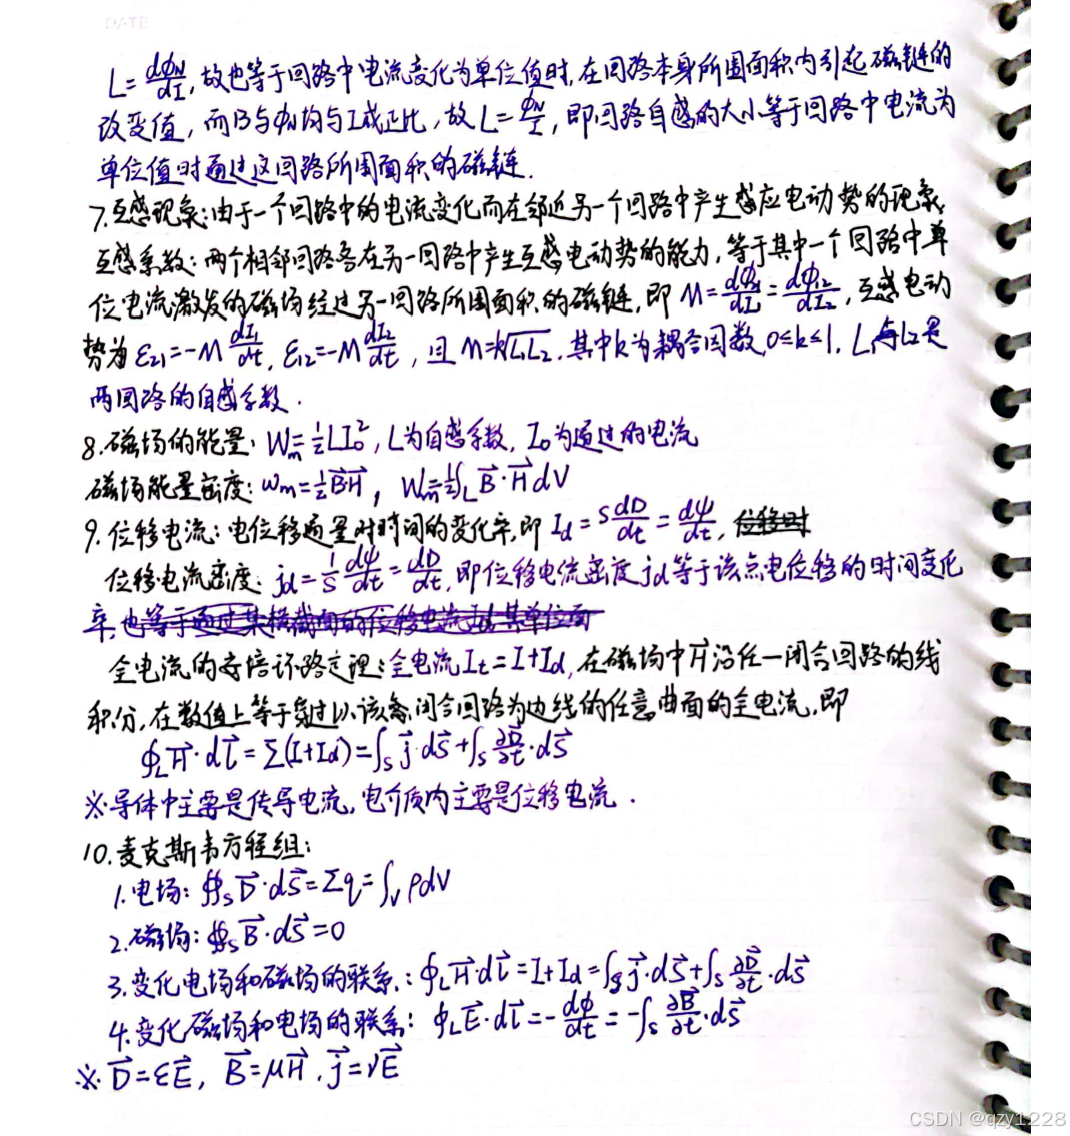 DATE
L=dΦN/dI, 故也等于回路中电流变化为单位值时,在回路本身所围面积内引起磁链的
改变值,而B与ΦN均与I成正比,故L=ΦN/I,即回路自感的大小等于回路中电流为
单位值时通过这回路所围面积的磁链.
7.互感现象:由于一个回路中的电流变化而在邻近另一个回路中产生感应电动势的现象
互感系数:两个相邻回路各在另一回路中产生互感电动势的能力,等于其中一个回路中单
位电流激发的磁场经过另一回路所围面积的磁链,即 M=dΦ21/dI1=dΦ12/dI2,互感电动
势为 ε21=-M dI1/dt, ε12=-M dI2/dt, 且 M=k√L1L2. 其中k为耦合因数,0≤k≤1. L1与L2是
两回路的自感系数.
8.磁场的能量: Wm=½LI0², L为自感系数, I0为通过的电流
磁场能量密度: wm=½B⃗H⃗, Wm=½∫L B⃗·H⃗dV
9.位移电流:电位移通量对时间的变化率,即 Id=S dD/dt=dψ/dt, 位移时
位移电流密度: jd=1/S dψ/dt=dD/dt,即位移电流密度jd等于该点电位移的时间变化
率,也等于通过某横截面的位移电流Id 某单位面
全电流的安培环路定理:全电流It=I+Id,在磁场中H⃗沿任一闭合回路的线
积分,在数值上等于穿过以该条闭合回路为边线的任意曲面的全电流,即
∮L H⃗·dl⃗=Σ(I+Id)=∫S j⃗·dS⃗+∫S ∂D⃗/∂t·dS⃗
※导体中主要是传导电流,电介质内主要是位移电流.
10.麦克斯韦方程组:
1.电场: ∯S D⃗·dS⃗=Σq=∫V ρdV
2.磁场: ∯S B⃗·dS⃗=0
3.变化电场和磁场的联系:∮L H⃗·dl⃗=I+Id=∫S j⃗·dS⃗+∫S ∂D⃗/∂t·dS⃗
4.变化磁场和电场的联系: ∮L E⃗·dl⃗=-dΦ/dt=-∫S ∂B⃗/∂t·dS⃗
※ D⃗=εE⃗, B⃗=μH⃗, j⃗=γE⃗
CSDN @qzy1228